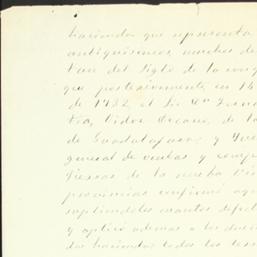 haciendas que representa
antiquisimos, muchos de
tan del siglo de la conq
que posteriormente en 14
de 1732, el Sr. Dn
Oidor Decano, de la
de Guadalajara y Juez
general de ventas y comp
de la nueva
provincias confirmó
supliendoles cuantos defect
y aplicó ademas a los dueñ
das haciendas todas las